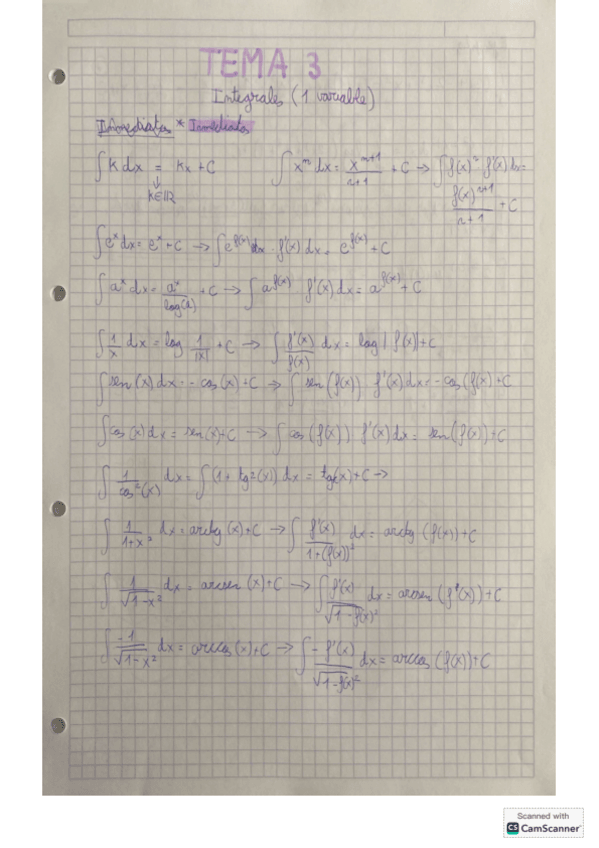 TEMA 3
Integrales (1 variable)
Inmediatas * Inmediatas
∫ K dx = Kx + C    ∫ x^n dx = x^(n+1)/(n+1) + C → ∫ f(x)^n f'(x) dx =
↓
K∈ℝ    f(x)^(n+1)/(n+1) + C
∫ e^x dx = e^x + C → ∫ e^f(x) dx · f'(x) dx = e^f(x) + C
∫ a^x dx = a^x/log(a) + C → ∫ a^f(x) f'(x) dx = a^f(x) + C
∫ 1/x dx = log 1/|x| + C → ∫ f'(x)/f(x) dx = log |f(x)| + C
∫ sen(x) dx = - cos(x) + C → ∫ sen(f(x)) f'(x) dx = - cos(f(x) + C
∫ cos(x) dx = sen(x) + C → ∫ cos(f(x)) f'(x) dx = sen(f(x)) + C
∫ 1/cos²(x) dx = ∫ (1 + tg²(x)) dx = tg(x) + C →
∫ 1/(1+x²) dx = arctg(x) + C → ∫ f'(x)/(1+(f(x))²) dx = arctg(f(x)) + C
∫ 1/√(1-x²) dx = arcsen(x) + C → ∫ f'(x)/√(1-f(x)²) dx = arcsen(f(x)) + C
∫ -1/√(1-x²) dx = arccos(x) + C → ∫ -f'(x)/√(1-f(x)²) dx = arccos(f(x)) + C
Scanned with
CS CamScanner